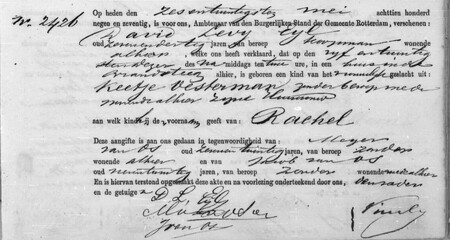 No. 2426
Op heden den zesentwintigsten mei achttien honderd
negen en zeventig, is voor ons, Ambtenaar van den Burgerlijken Stand der Gemeente Rotterdam, verschenen:
David Levy Eyl
oud jaren, van beroep Koopman wonende
alhier, welke ons heeft verklaard, dat op den
dezer des na middags ten twee ure, in een huis in de
Brandsteeg alhier, is geboren een kind van het vrouwelijk geslacht uit:
Keetje Vesterman, zonder beroep mede
wonende alhier zijne Huisvrouw
aan welk kind hij de voornaam geeft van: Rachel
Deze aangifte is aan ons gedaan in tegenwoordigheid van: Meyer
van Os oud jaren, van beroep zonder
wonende alhier en van Jacob van Os
oud jaren, van beroep zonder wonende mede alhier
En is hiervan terstond opgemaakt deze akte en na voorlezing onderteekend door ons, den vader
en de getuigen
D. L. Eyl
M van Os
J van Os